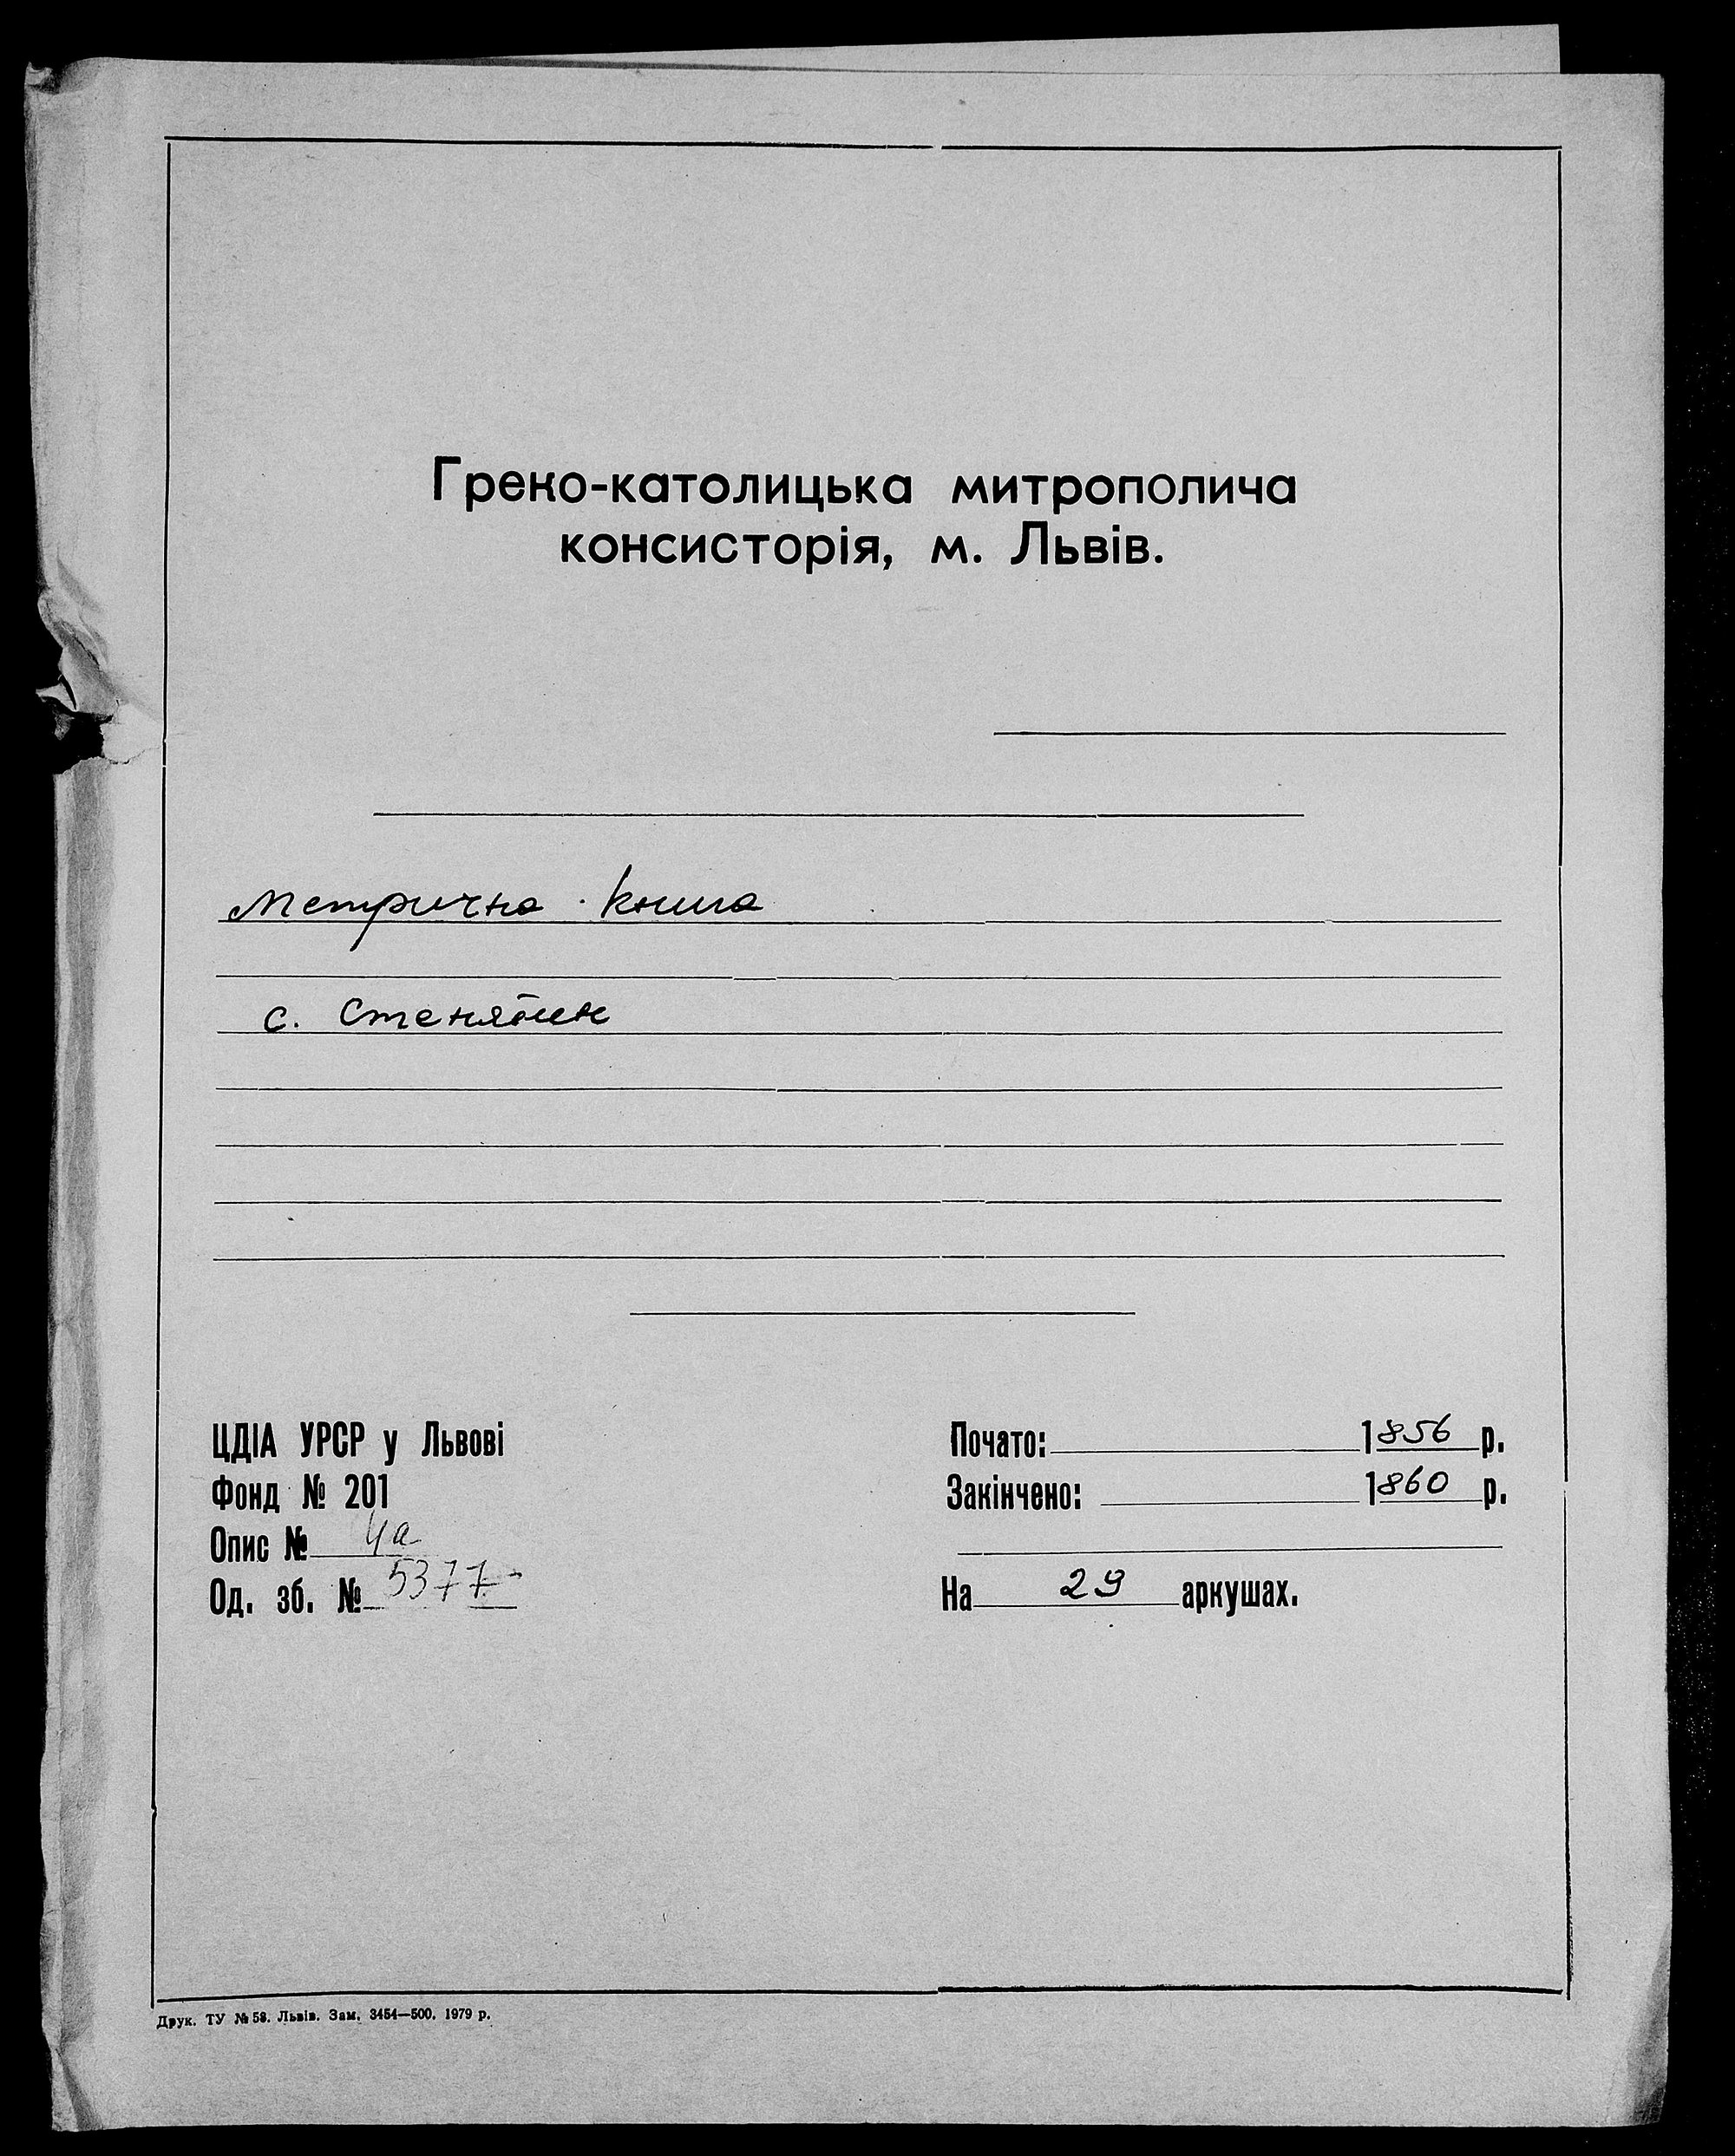 Греко-католицька митрополича
консисторія, м. Львів.
Метрична книга
с. Стенятин
ЦДІА УРСР у Львові
Фонд № 201
Опис № 4а
Од. зб. № 5377
Почато: 1856 р.
Закінчено: 1860 р.
На 29 аркушах.
Друк. ТУ № 58. Львів. Зам. 3454—500. 1979 р.